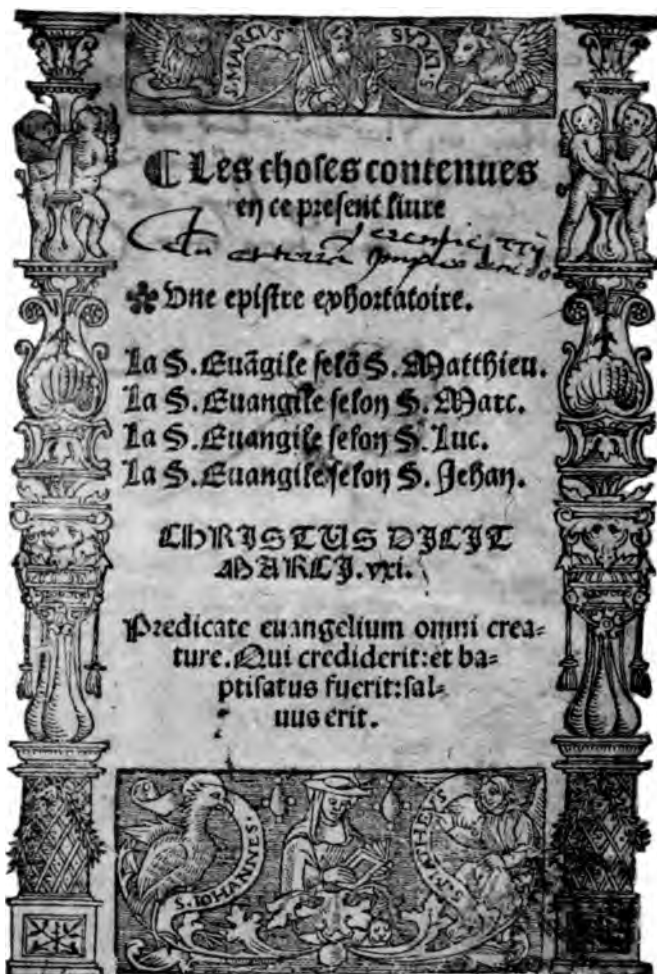 S. MARCVS
S. LVCAS
¶ Les choses contenues
en ce present liure
✤ Vne epistre exhortatoire.
La S. Euãgile selõ S. Matthieu.
La S. Euangile selon S. Marc.
La S. Euangile selon S. Luc.
La S. Euangile selon S. Jehan.
CHRISTUS DICIT
MARCI. xvi.
Predicate euangelium omni crea=
ture. Qui crediderit: et ba=
ptisatus fuerit: sal=
uus erit.
S. IOHANNES.
S. MATHEVS